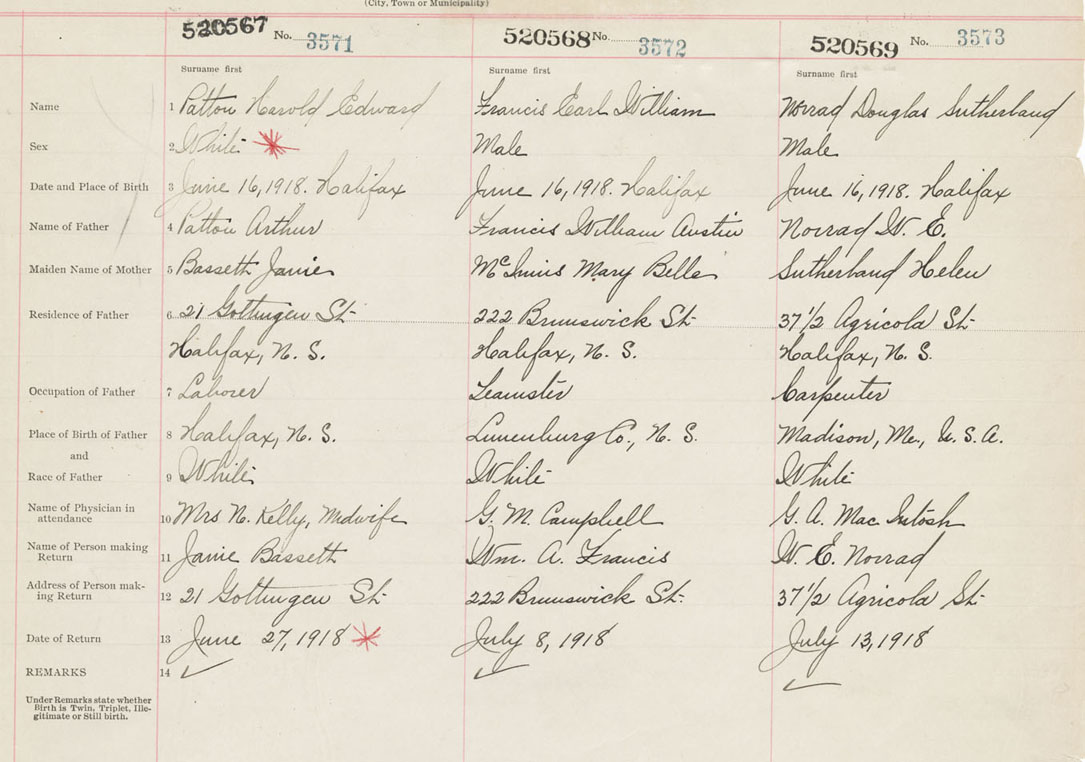 (City, Town or Municipality)
520567 No. 3571 520568 No. 3572 520569 No. 3573
Surname first Surname first Surname first
Name 1 Patton Harold Edward Francis Earl William Norrad Douglas Sutherland
Sex 2 White * Male Male
Date and Place of Birth 3 June 16, 1918. Halifax June 16, 1918. Halifax June 16, 1918. Halifax
Name of Father 4 Patton Arthur Francis William Austin Norrad W. E.
Maiden Name of Mother 5 Bassett Janie McInnis Mary Belle Sutherland Helen
Residence of Father 6 21 Gottingen St. 222 Brunswick St. 37 1/2 Agricola St.
Halifax, N. S. Halifax, N. S. Halifax, N. S.
Occupation of Father 7 Laborer Teamster Carpenter
Place of Birth of Father 8 Halifax, N. S. Lunenburg Co., N. S. Madison, Me., U. S. A.
and
Race of Father 9 White White White
Name of Physician in
attendance 10 Mrs N. Kelly, Midwife G. M. Campbell G. A. MacIntosh
Name of Person making
Return 11 Janie Bassett Wm. A. Francis W. E. Norrad
Address of Person mak-
ing Return 12 21 Gottingen St. 222 Brunswick St. 37 1/2 Agricola St.
Date of Return 13 June 27, 1918 * July 8, 1918 July 13, 1918
REMARKS 14 ✓ ✓ ✓
Under Remarks state whether
Birth is Twin, Triplet, Ille-
gitimate or Still birth.